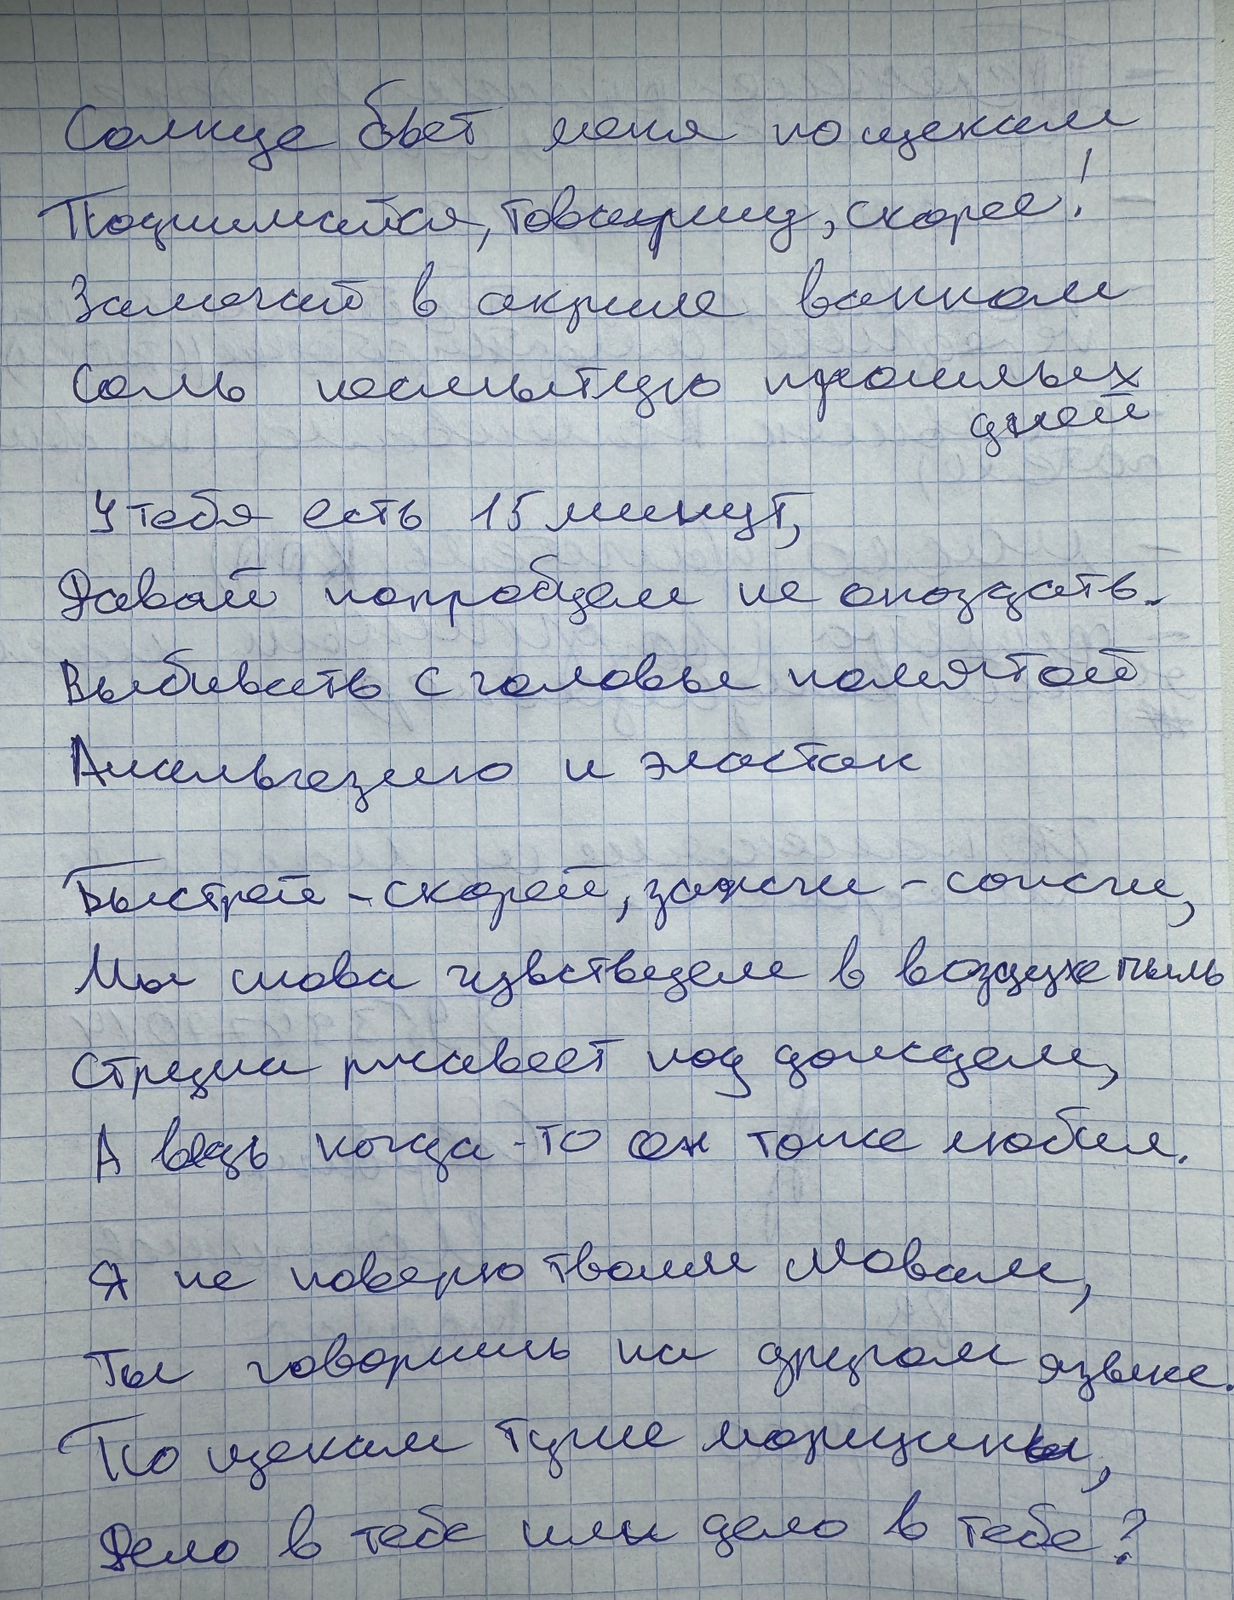 Солнце бьет меня по щекам
Поднимайся, товарищ, скорее!
Замачай в акриле ванном
Соль несмытую прошлых
дней
У тебя есть 15 минут,
Давай попробуем не опоздать.
Выбивать с головы помятой
Анальгезию и эластан
Быстрей - скорей, зажги - сожги,
Мы снова чувствуем в воздухе пыль
Струна ржавеет под дождем,
А ведь когда-то он тоже любил.
Я не поверю твоим словам,
Ты говоришь на другом языке.
По щекам туше морщины,
Дело в тебе или дело в тебе?